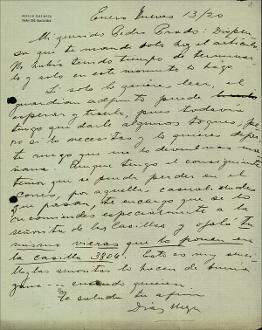 Enero Jueves 13/20
Mi querido Pedro Prado: Dispen-
sa que te mande solo hoy el artículo
No había tenido tiempo de terminar-
lo y solo en este momento lo hago.
Si solo lo quieres leer, el
guardián adjunto puede
esperar y traerlo, pues todavía
tengo que darle algunos toques, pe-
ro si lo necesitas y lo quieres dejar
te ruego que me lo devuelvas ma-
ñana. Aunque tengo el consiguiente
temor que se pueda perder en el
correo, por aquellas casualidades
que pasan, te encargo que se lo
recomiendes especialmente a la
señorita de las casillas y ojalá tu
mismo veas que lo ponen en
la casilla 3804. Esto es muy
las señoritas lo hacen de buena
gana — cuando quieren.
Te saluda tu afmo